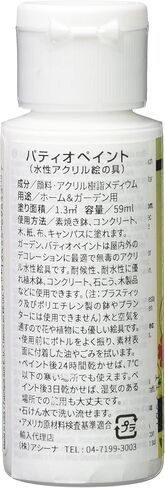 パティオペイント
(水性アクリル絵の具)
成分／顔料・アクリル樹脂メディウム
用途／ホーム&ガーデン用
塗り面積／1.3㎡ 容量／59ml
使用方法／素焼き鉢、コンクリート、
木、紙、布、キャンバスに塗れます。
ガーデン、パティオペイントは屋内外の
デコレーションに最適で無毒のアクリ
ル水性絵具です。耐候性、耐水性に優
れ植木鉢、コンクリート、石こう、木製品
などに使用できます。(注:プラスティッ
ク及びポリエチレン製の鉢やプランタ
ーには使用できません)水と空気を
通すので花や植物にも優しい絵具です。
・使用前にボトルをよく振り、素材表
面に付着した油やごみを拭います。
・ペイント後24時間乾かせば、7℃
以下の寒い場所でも使えます。ペ
イント後3日乾かせば、湿気のある
場所での使用も大丈夫です。
・石けん水で洗い流せます。
・アメリカ原材料検査基準適合
輸入代理店
(株)アシーナ ℡ 04-7199-3003
プラ